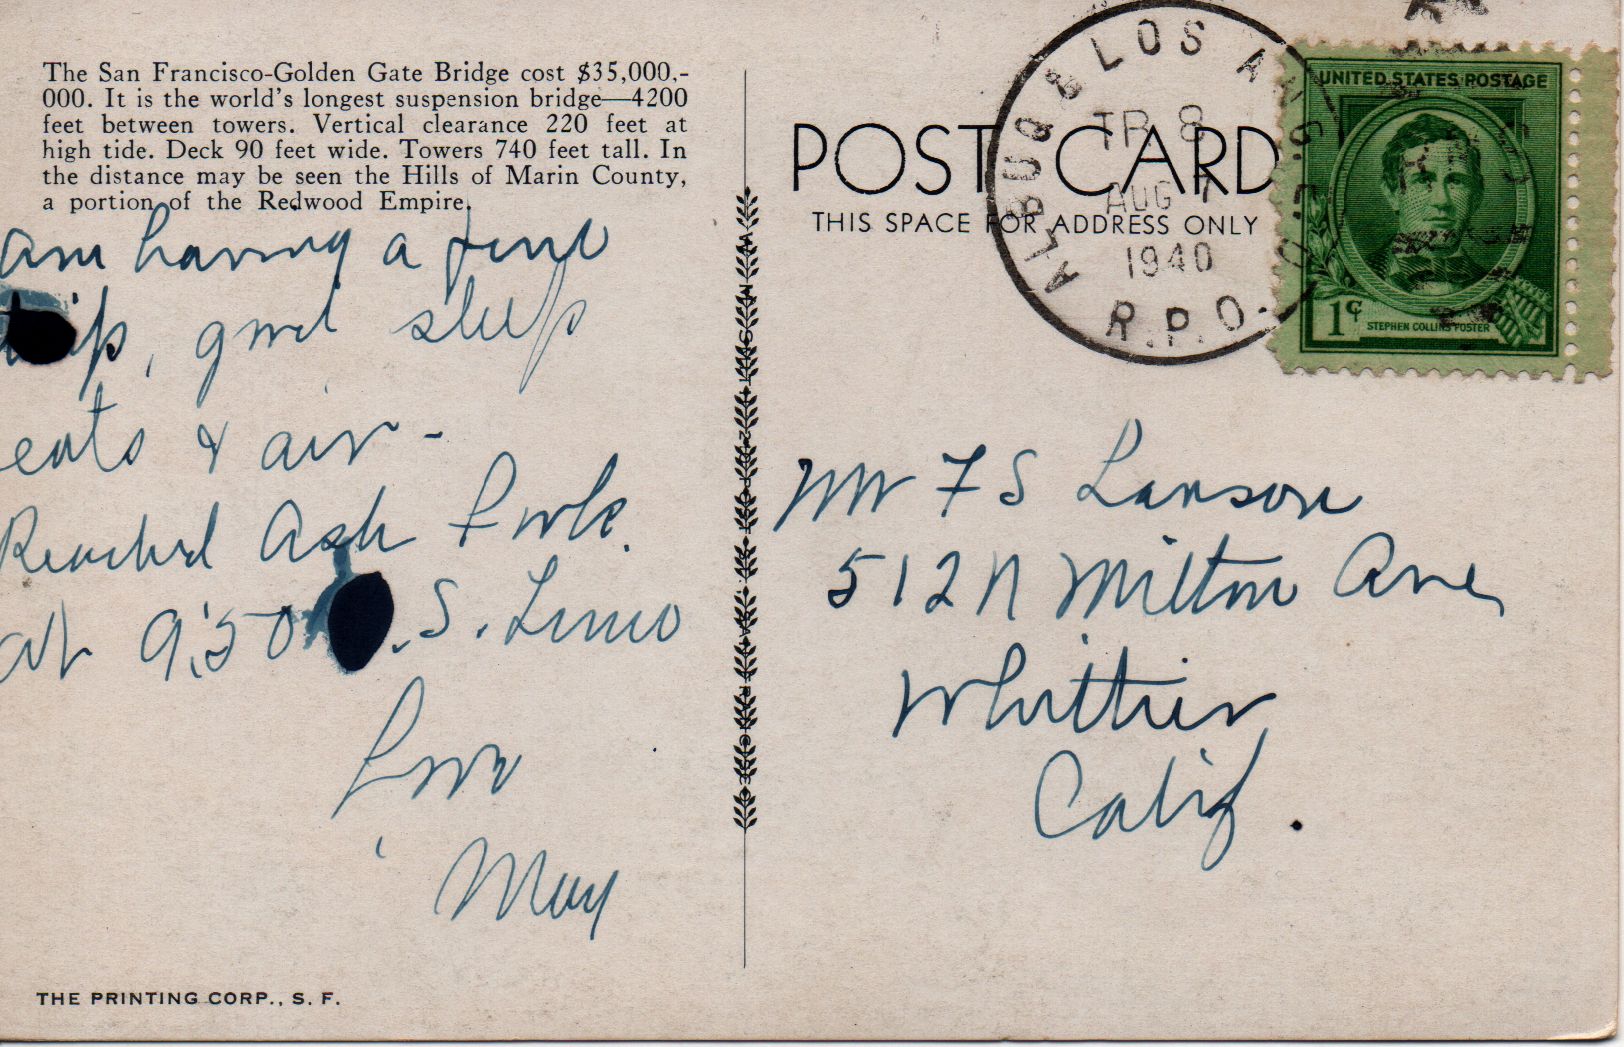 The San Francisco-Golden Gate Bridge cost $35,000,-
000. It is the world's longest suspension bridge—4200
feet between towers. Vertical clearance 220 feet at
high tide. Deck 90 feet wide. Towers 740 feet tall. In
the distance may be seen the Hills of Marin County,
a portion of the Redwood Empire.
am having a fine
trip, good sleep
eats & air -
Reached Ash Fork.
at 9:50 .S. Time
Love
May
THE PRINTING CORP., S. F.
POST CARD
THIS SPACE FOR ADDRESS ONLY
ALBUQ & LOS ANG. E.D.
TR 8
AUG 7
1940
R.P.O.
UNITED STATES POSTAGE
1¢
STEPHEN COLLINS FOSTER
Mr F S Larson
512 N Milton Ave
Whittier
Calif.